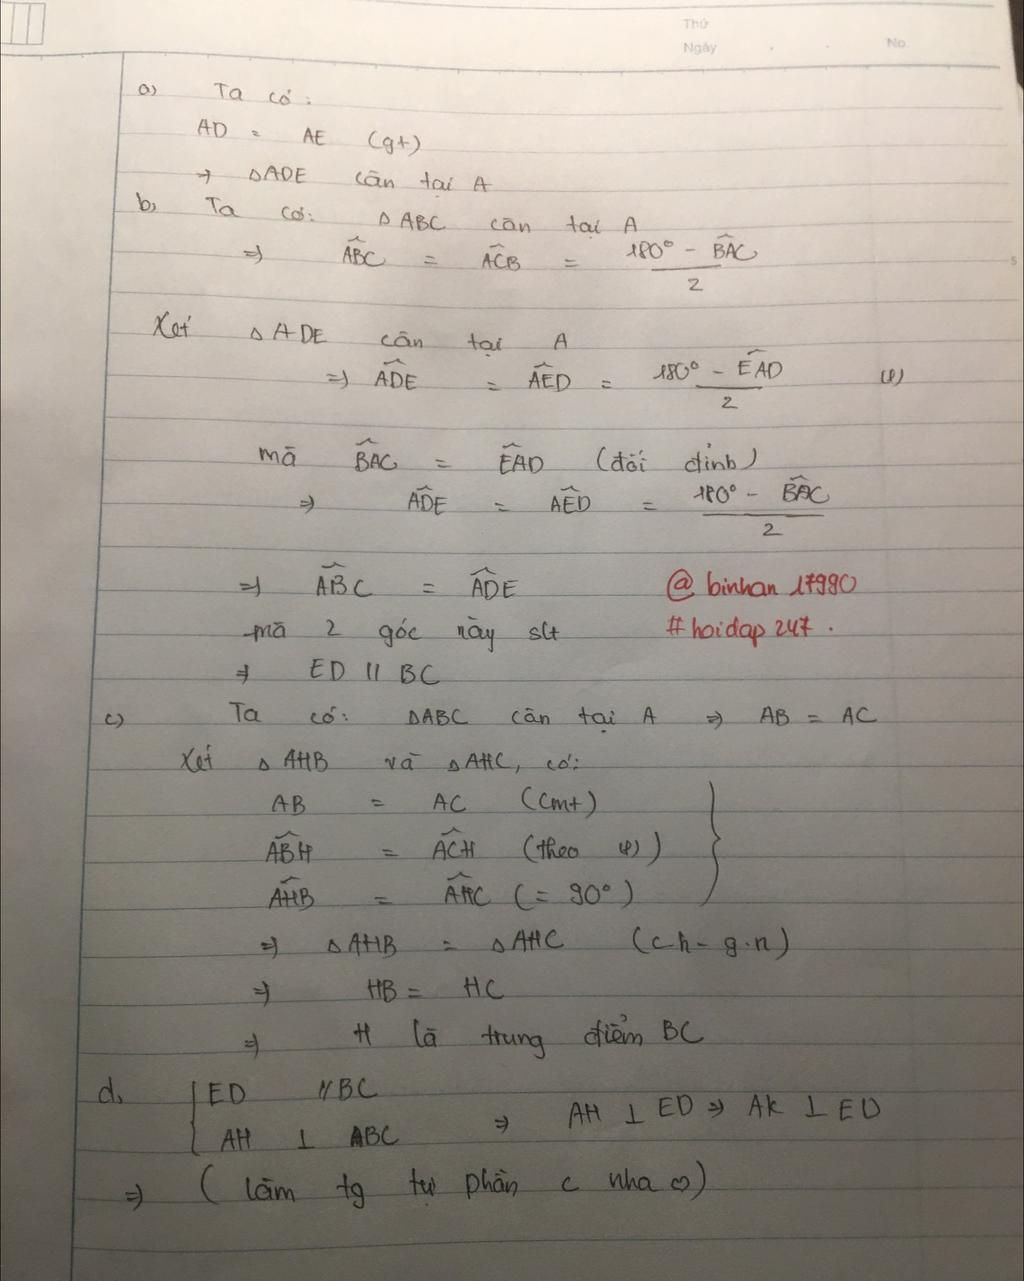 Thứ
Ngày . . No.
a) Ta có:
AD = AE (gt)
→ △ADE cân tại A
b, Ta có: △ABC cân tại A
⇒ ABC = ACB = (180° - BAC)/2
Xét △ADE cân tại A
⇒ ADE = AED = (180° - EAD)/2
mà BAC = EAD (đối đỉnh)
⇒ ADE = AED = (180° - BAC)/2
⇒ ABC = ADE @ binhan 17980
mà 2 góc này slt # hoidap 247.
⇒ ED // BC
c) Ta có: △ABC cân tại A ⇒ AB = AC
Xét △AHB và △AHC, có:
AB = AC (cmt)
ABH = ACH (theo )
AHB = AHC (= 90°)
⇒ △AHB = △AHC (c.h - g.n)
⇒ HB = HC
⇒ H là trung điểm BC
d, { ED // BC
AH ⊥ BC ⇒ AH ⊥ ED ⇒ AK ⊥ ED
⇒ (làm tg tự phần c nha ♡)